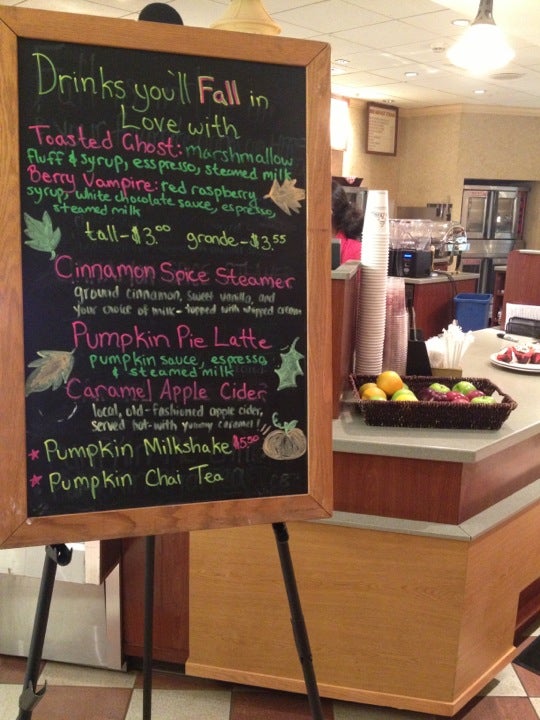 Drinks you'll Fall in
Love with
Toasted Ghost: marshmallow
fluff & syrup, esspresso, steamed milk
Berry Vampire: red raspberry
syrup, white chocolate sauce, espresso,
steamed milk
tall-$3.00 grande-$3.55
Cinnamon Spice Steamer
ground cinnamon, sweet vanilla, and
your choice of milk-topped with whipped cream
Pumpkin Pie Latte
pumpkin sauce, espresso
& steamed milk
Caramel Apple Cider
local, old-fashioned apple cider,
served hot-with yummy caramel!
Pumpkin Milkshake $5.50
Pumpkin Chai Tea